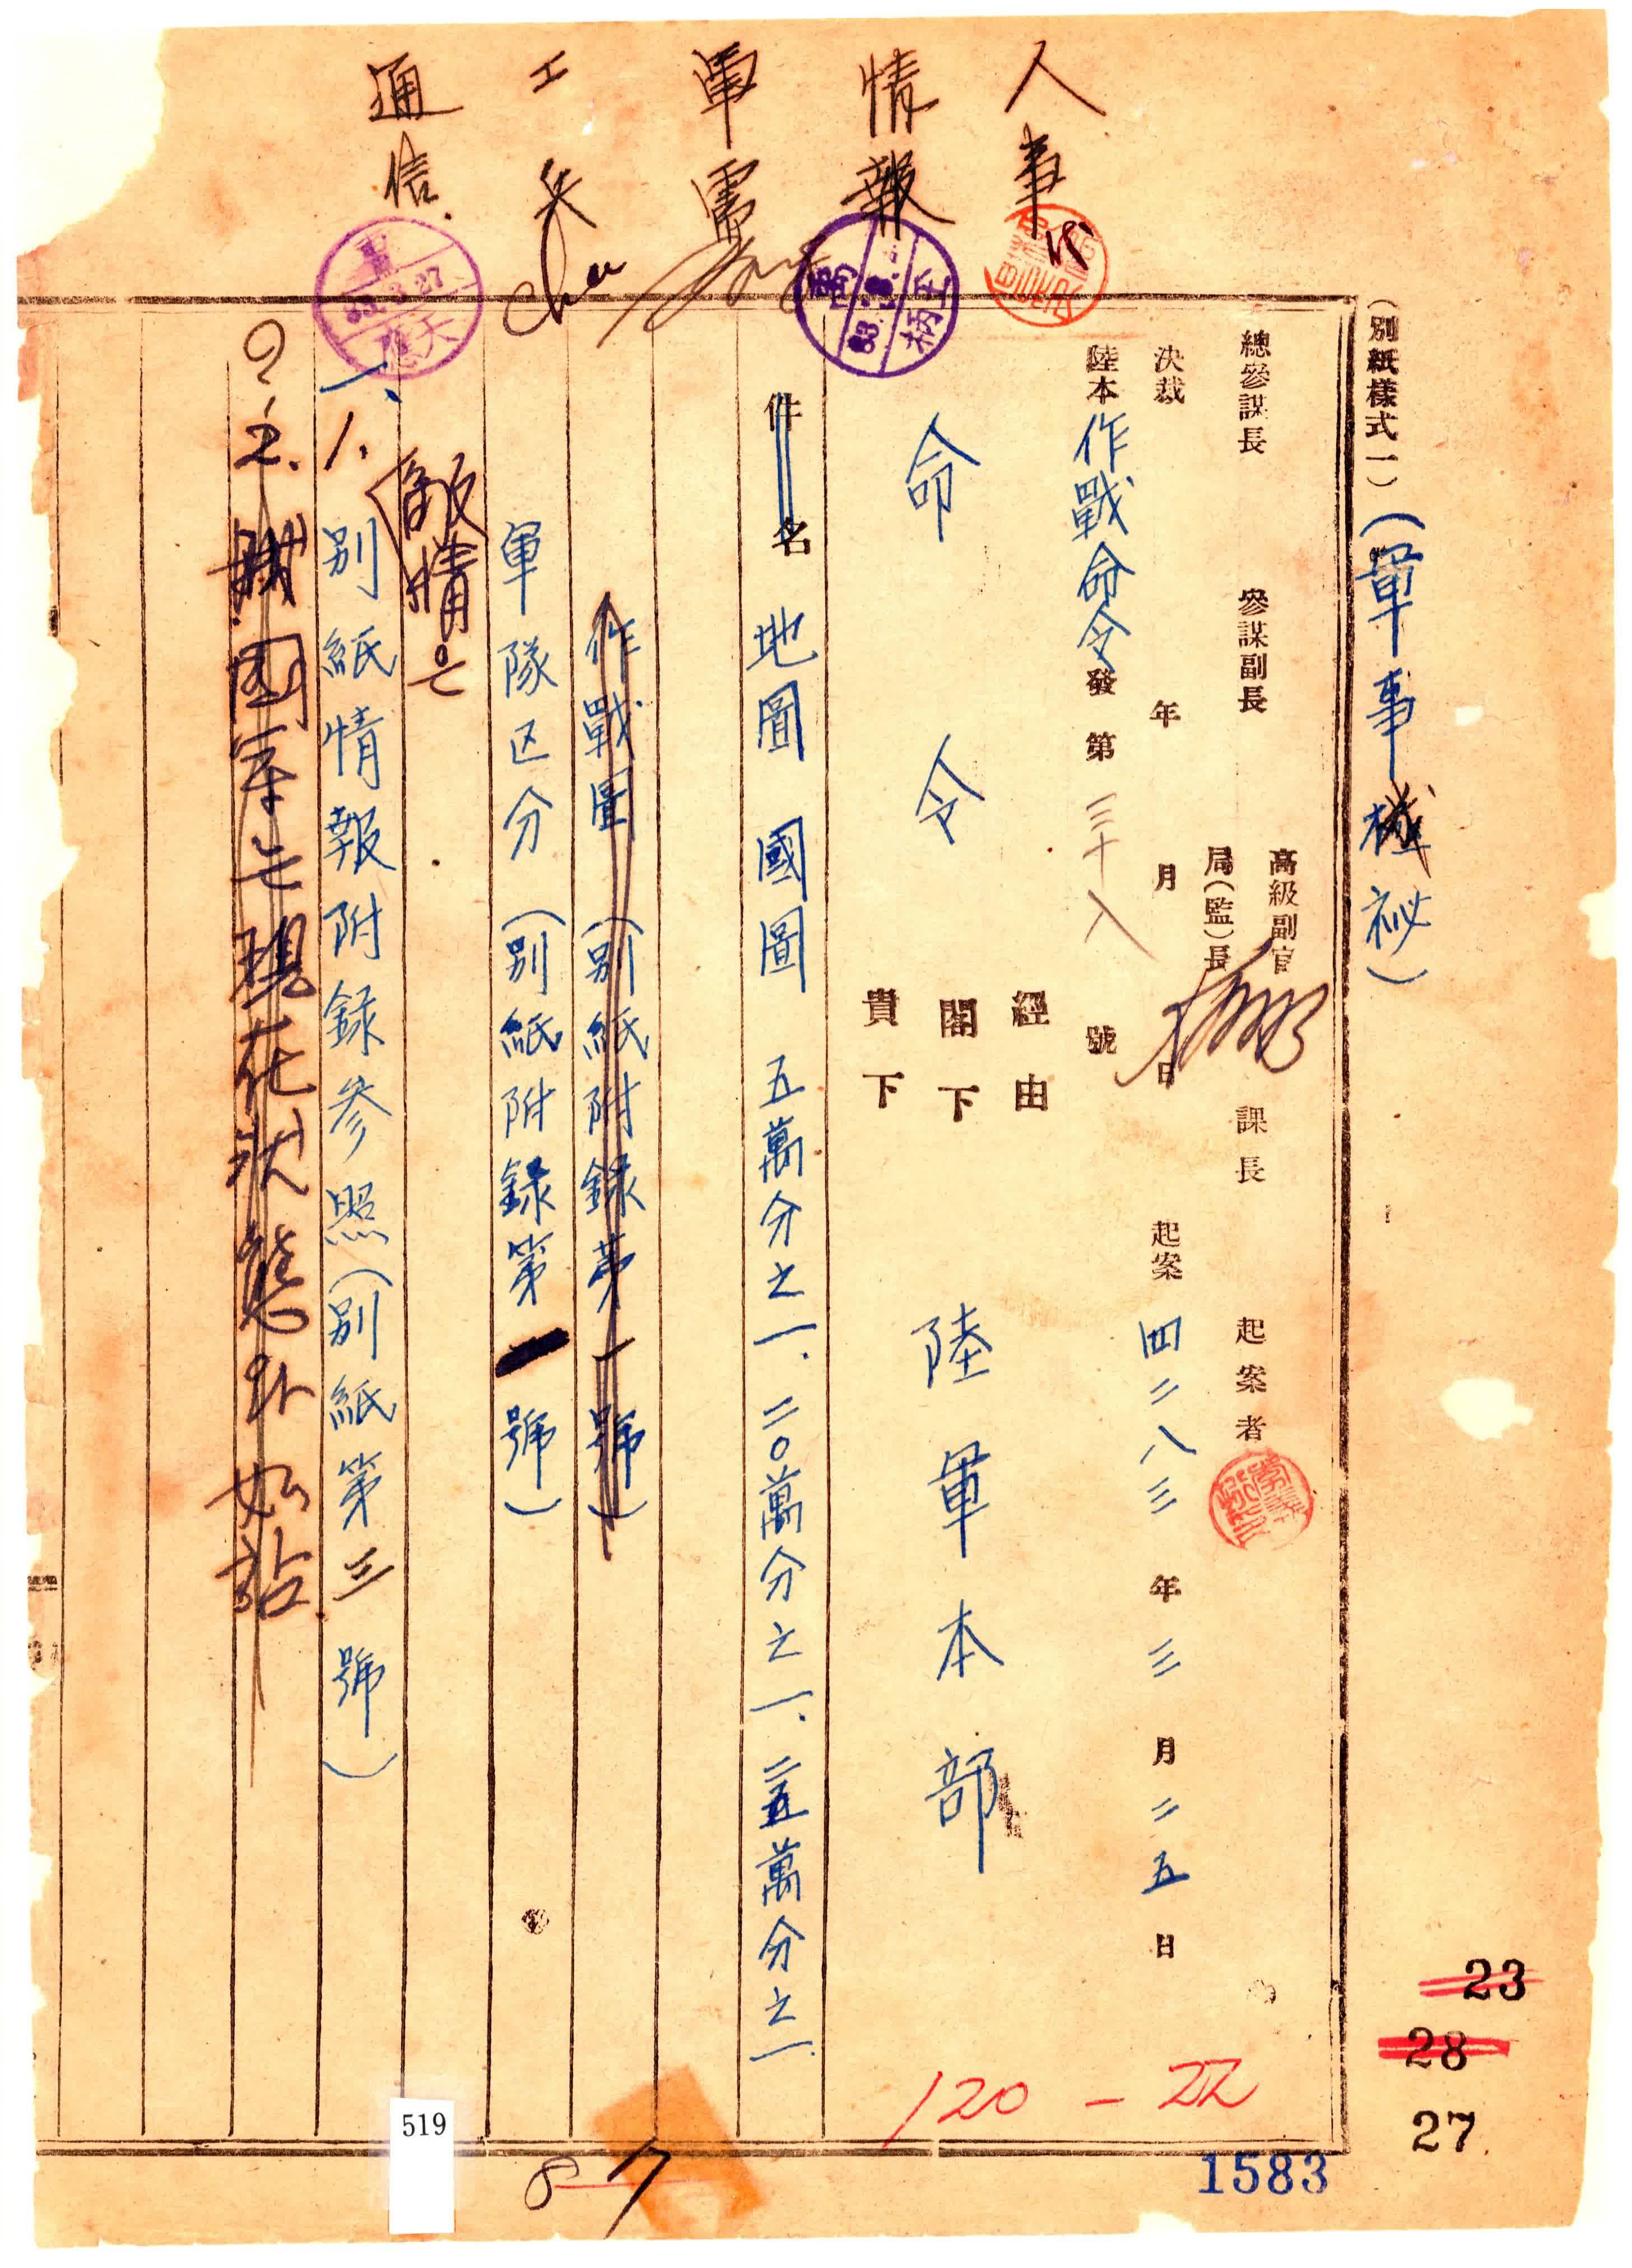 人事
情報
軍需
工兵
通信
(別紙樣式一) (軍事機祕)
總參謀長 參謀副長 高級副官 局(監)長 課長 起案者
決裁 年 月 日 起案 四二八三 年 三 月 二五 日
陸本作戰命令發 第 三十八 號
經由
命令 閣下 陸軍本部
貴下
件名 地圖 國圖 五萬分之一. 二〇萬分之一. 二五萬分之一.
作戰圖 (別紙附錄第一號)
軍隊区分 (別紙附錄第一號)
敵情은
一、1. 別紙情報附錄參照(別紙第三號)
2. 國軍는 現在狀態와 如

120-22
23
28
27
1583
519
8
7